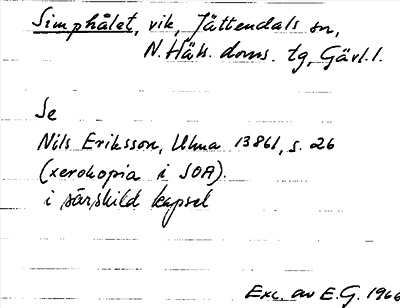 Simphålet, vik, Jättendals sn,
N. Häls. doms. tg, Gävl. l.
Se
Nils Eriksson, Ulma 13861, s. 26
(xerokopia i SOA).
i särskild kapsel
Exc. av E.G. 1966